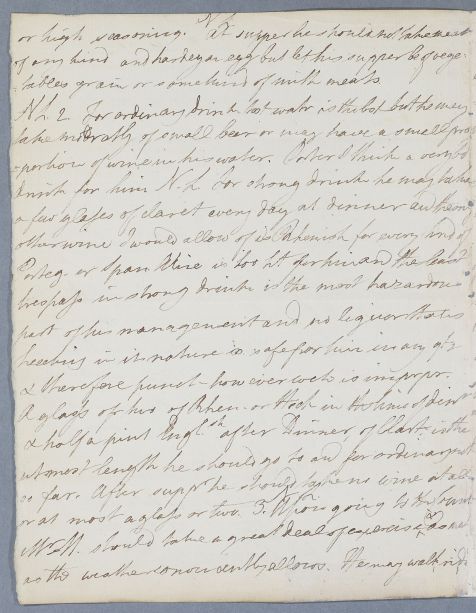 or high seasoning. N.1. At supper he should not take meat
of any kind and hardly an egg but let his supper be of vege-
tables grain or some kind of milk meats
N.2. For ordinary drink toast water is the best but he may
take moderatly of small beer or may have a small pro
-portion of wine in his water. Porter I think a very bad
drink for him N.2. For strong drink he may take
a few glasses of claret every day at dinner and the only
other wine I would allow of is Rhenish for every kind of
Portug. or Span Wine is too hot for him and the least
trespass in strong drink is the most hazardous
part of his management and no liquor that is
heating in its nature is safe for him in any qty
& therefore punch however weak is impropr.
A glass or two of Rhen. or Hock in the time of dinr
& half a pint Englsh after Dinner of Clart. is the
utmost length he should go to and for ordinary not
so far. After suppr he should take no wine at all
or at most a glass or two. 3. Upon going to the
Mr M. should take a great deal of exercise, and as
as the weather conveniently allows. He may walk ride